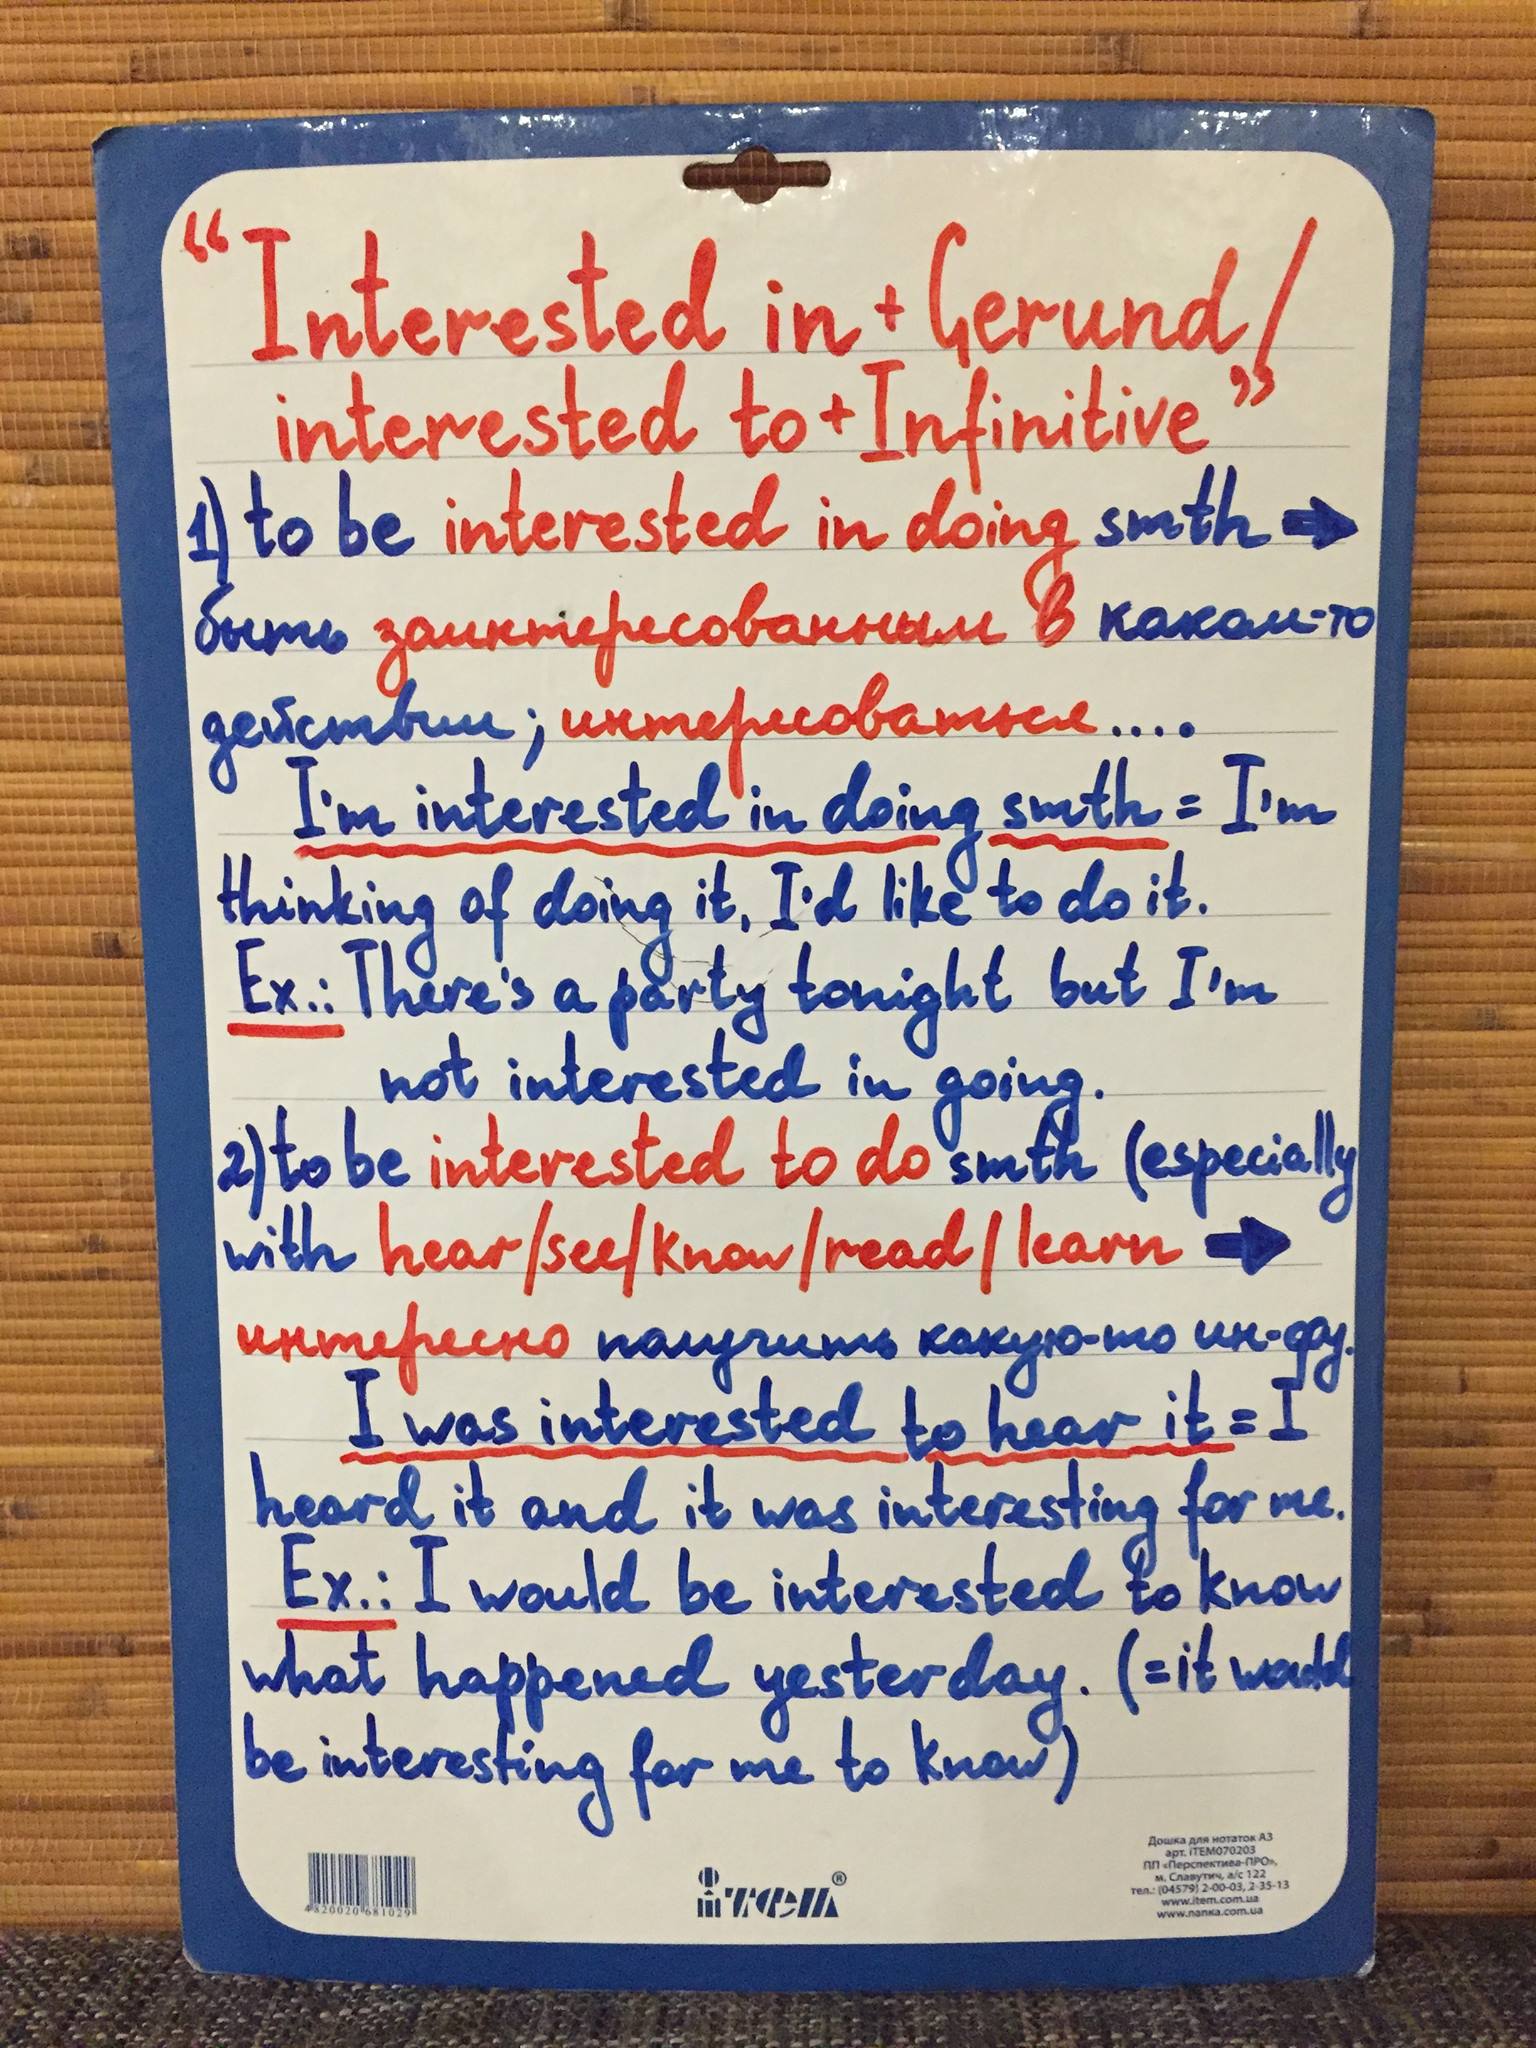 “Interested in + Gerund/
interested to + Infinitive”
1) to be interested in doing smth ➡
быть заинтересованным в каком-то
действии; интересоваться....
I'm interested in doing smth = I'm
thinking of doing it, I'd like to do it.
Ex.: There's a party tonight but I'm
not interested in going.
2) to be interested to do smth (especially
with hear/see/know/read/learn ➡
интересно получить какую-то ин-фу.
I was interested to hear it = I
heard it and it was interesting for me.
Ex.: I would be interested to know
what happened yesterday. (= it would
be interesting for me to know)
4820020 681029
iтем®
Дошка для нотаток А3
арт. iTEM070203
ПП «Перспектива-ПРО»,
м. Славутич, а/с 122
тел.: (04579) 2-00-03, 2-35-13
www.item.com.ua
www.папка.com.ua